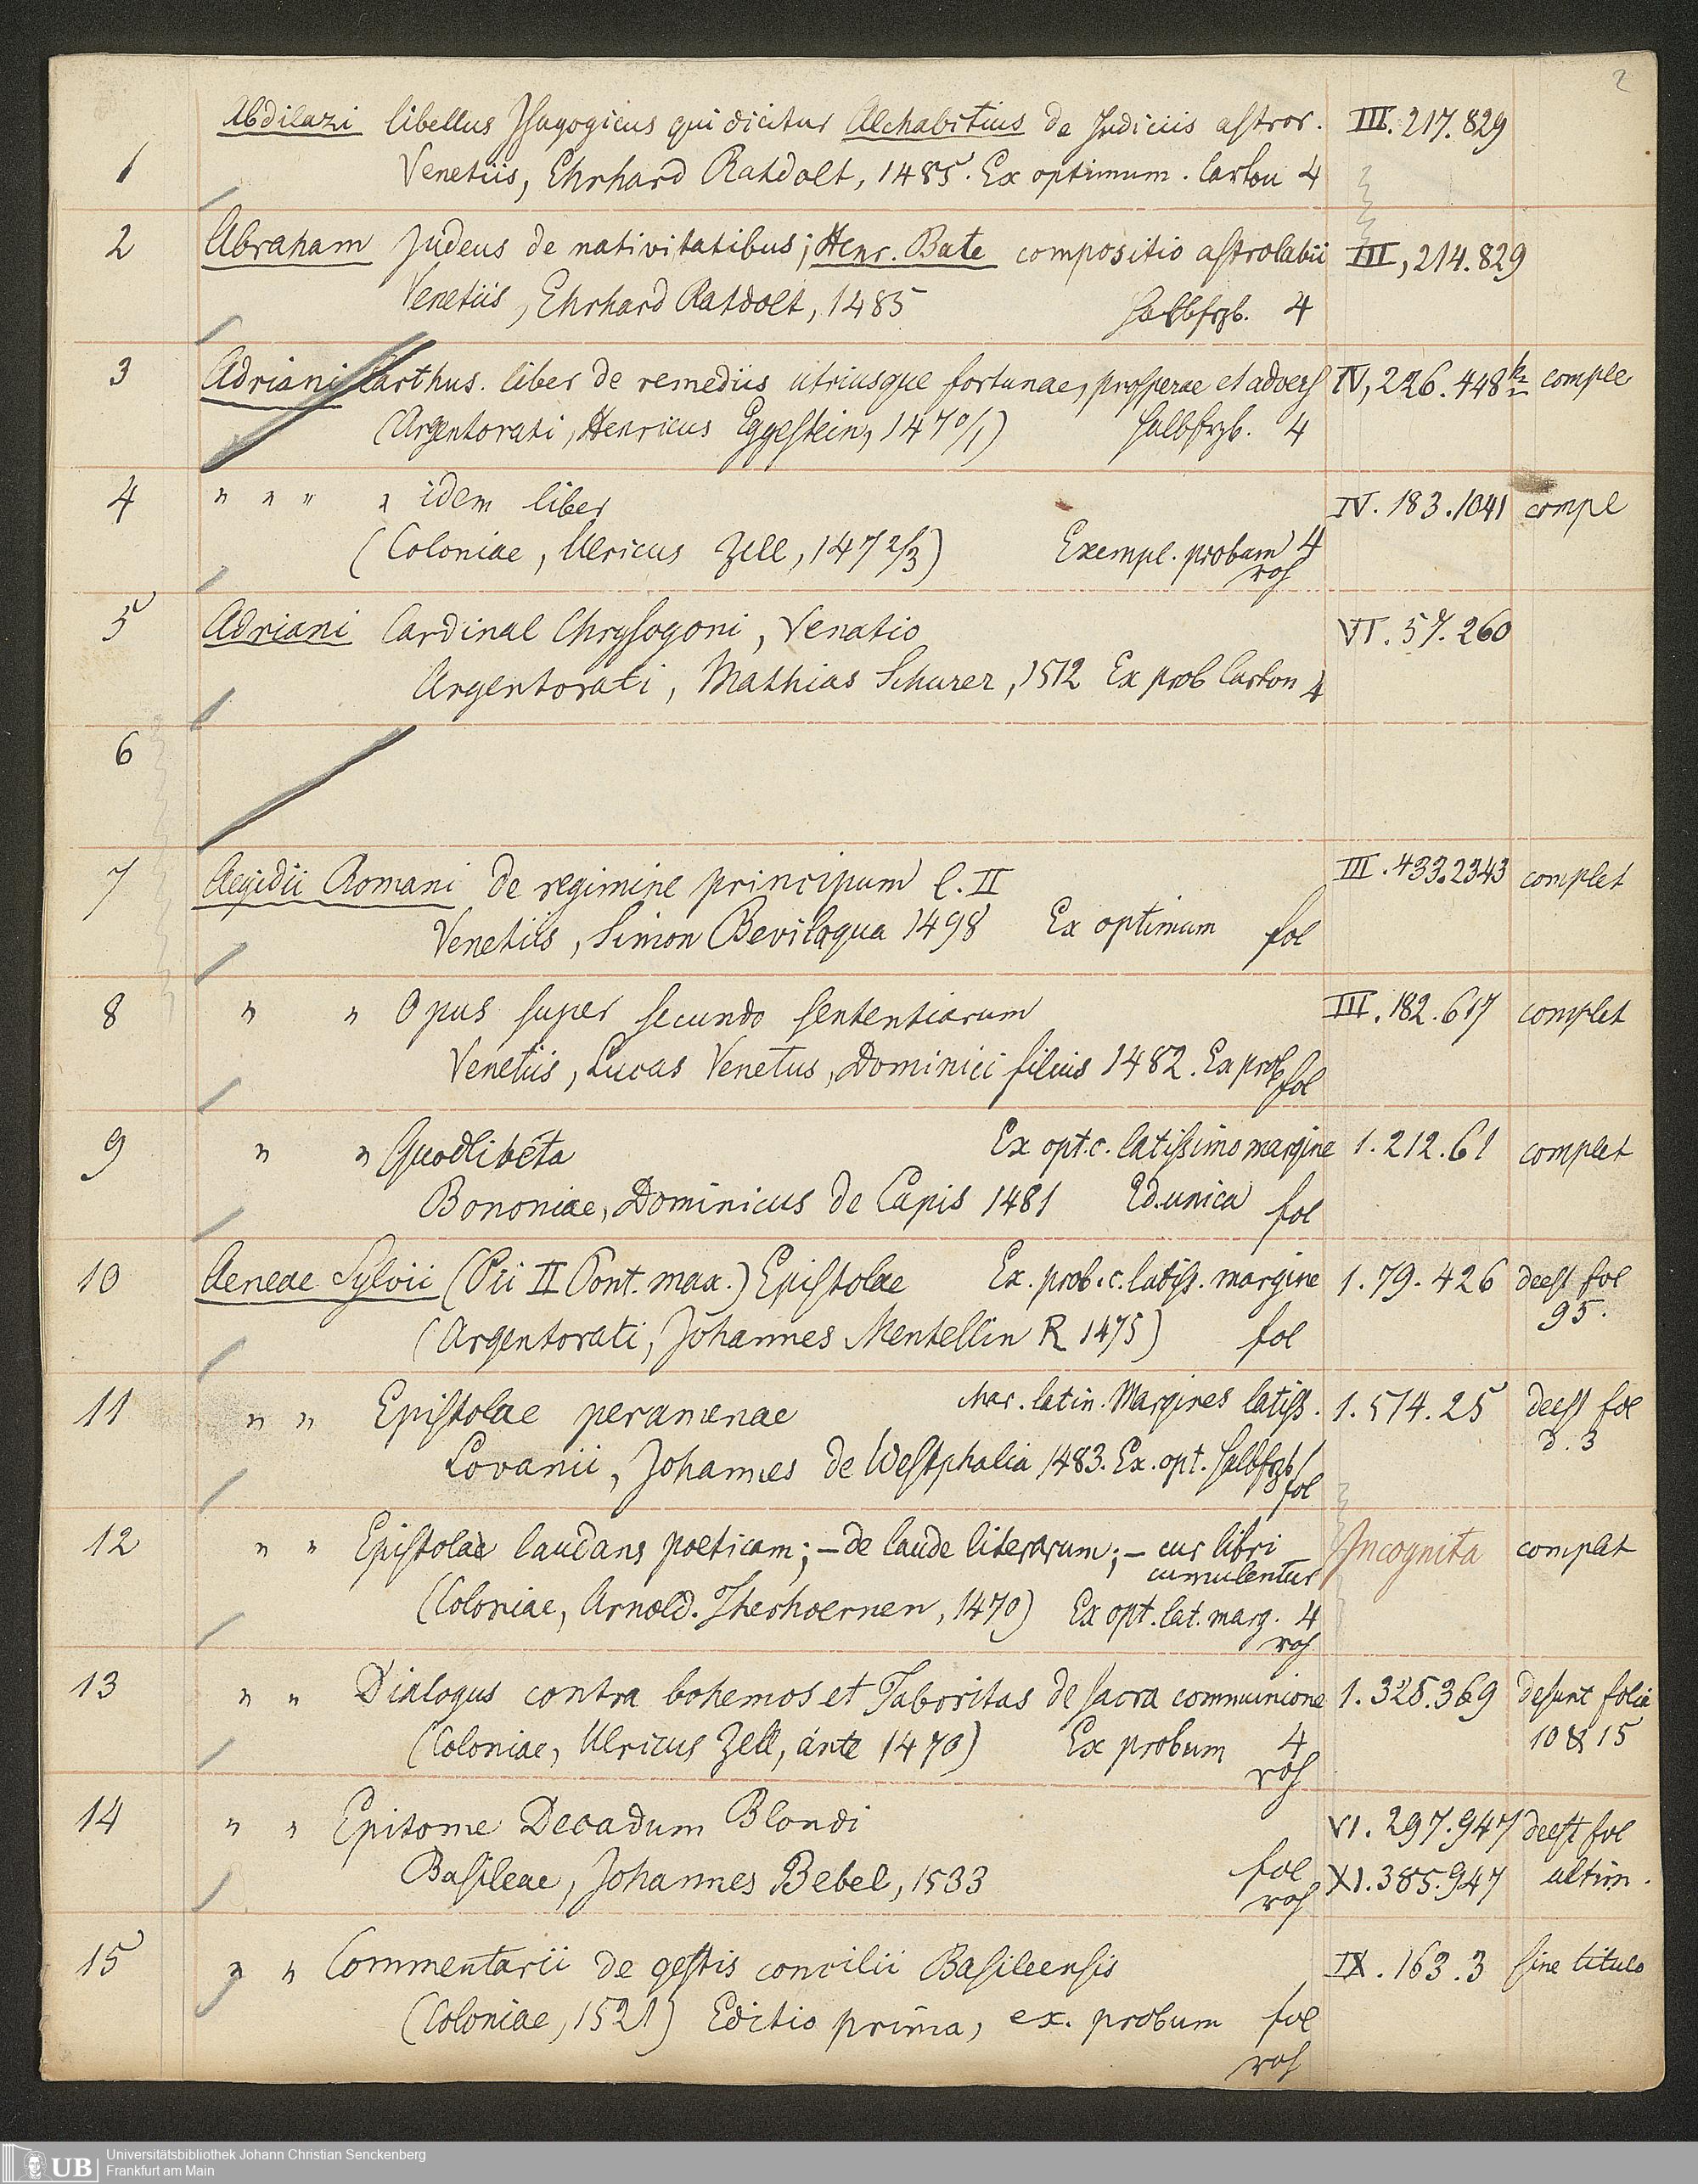 2
1 Abdilazi libellus Isagogicus qui dicitur Alchabitius de Judiciis astror. III. 217. 829
Venetiis, Ehrhard Ratdolt, 1485. Ex optimum. Carton 4
2 Abraham Judeus de nativitatibus; Henr. Bate compositio astrolabii III, 214. 829
Venetiis, Ehrhard Ratdolt, 1485 Halbfrzb. 4
3 Adriani Carthus. liber de remediis utriusque fortunae, prosperae et advers IV, 226. 448 comple
(Argentorati, Henricus Eggestein, 1470/1) Halbfrzb. 4
4 " " " " idem liber IV. 183. 1041 compl
(Coloniae, Ulricus Zell, 1472/3) Exempl. probum 4
roh
5 Adriani Cardinal Chrysogoni, Venatio VI. 57. 260
Argentorati, Mathias Schurer, 1512 Ex prob Carton 4
6
7 Aegidii Romani de regimine principum l. II III. 433. 2343 complet
Venetiis, Simon Bevilaqua 1498 Ex optimum fol
8 " " Opus super secundo sententiarum III. 182. 617 complet
Venetiis, Lucas Venetus, Dominici filius 1482. Ex prob fol
9 " " Quodlibeta Ex opt. c. latissimo margine 1. 212. 61 complet
Bononiae, Dominicus de Lapis 1481 Ed. unica fol
10 Aeneae Sylvii (Pii II Pont. max.) Epistolae Ex. prob. c. latiss. margine 1. 79. 426 deest fol
95.
(Argentorati, Johannes Mentellin R 1475) fol
11 " " Epistolae peramenae Char. latin. Margines latiss. 1. 514. 25 deest fol
d. 3
Lovanii, Johannes de Westphalia 1483. Ex. opt. Halbfrzb/
fol
12 " " Epistolae laudans poeticam; – de laude literarum; – cur libri Incognita complet
cumulentur
(Coloniae, Arnold. Therhoernen, 1470) Ex opt. lat. marg. 4
roh
13 " " Dialogus contra bohemos et Taboritas de sacra communione 1. 325. 369 desunt folia
(Coloniae, Ulricus Zell, ante 1470) Ex probum 4 10 & 15
roh
14 " " Epitome Decadum Blondi VI. 297. 947 deest fol
Basileae, Johannes Bebel, 1533 fol XI. 385. 947 ultim.
roh
15 " " Commentarii de gestis concilii Basileensis IX. 163. 3 sine titulo
(Coloniae, 1521) Editio prima, ex. probum fol
roh
UB Universitätsbibliothek Johann Christian Senckenberg
Frankfurt am Main